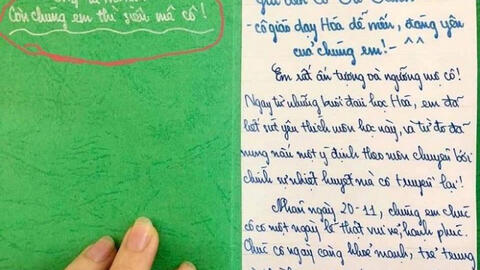 Còn chúng em thì siêu mê cô!
- cô giáo dạy Hoá dễ mến, đáng yêu
của chúng em! - ^^
Em rất ấn tượng và ngưỡng mộ cô!
Ngay từ những buổi đầu học Hoá, em đã
rất yêu thích môn học này, và từ đó đã
nung nấu một ý định theo môn chuyên bởi
chính sự nhiệt huyết mà cô truyền lại!
Nhân ngày 20-11, chúng em chúc
cô có một ngày lễ thật vui vẻ, hạnh phúc.
Chúc cô ngày càng khoẻ mạnh, trẻ trung